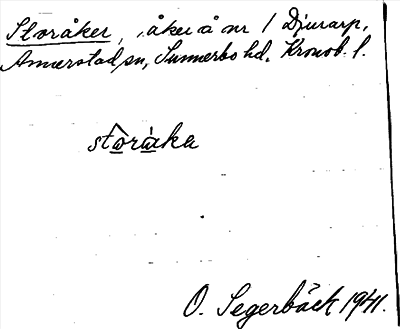 Storåker, åker å nr 1 Djurarp,
Annerstad sn, Sunnerbo hd, Kronob. l.
stōràka
O. Segerbäck 1941.